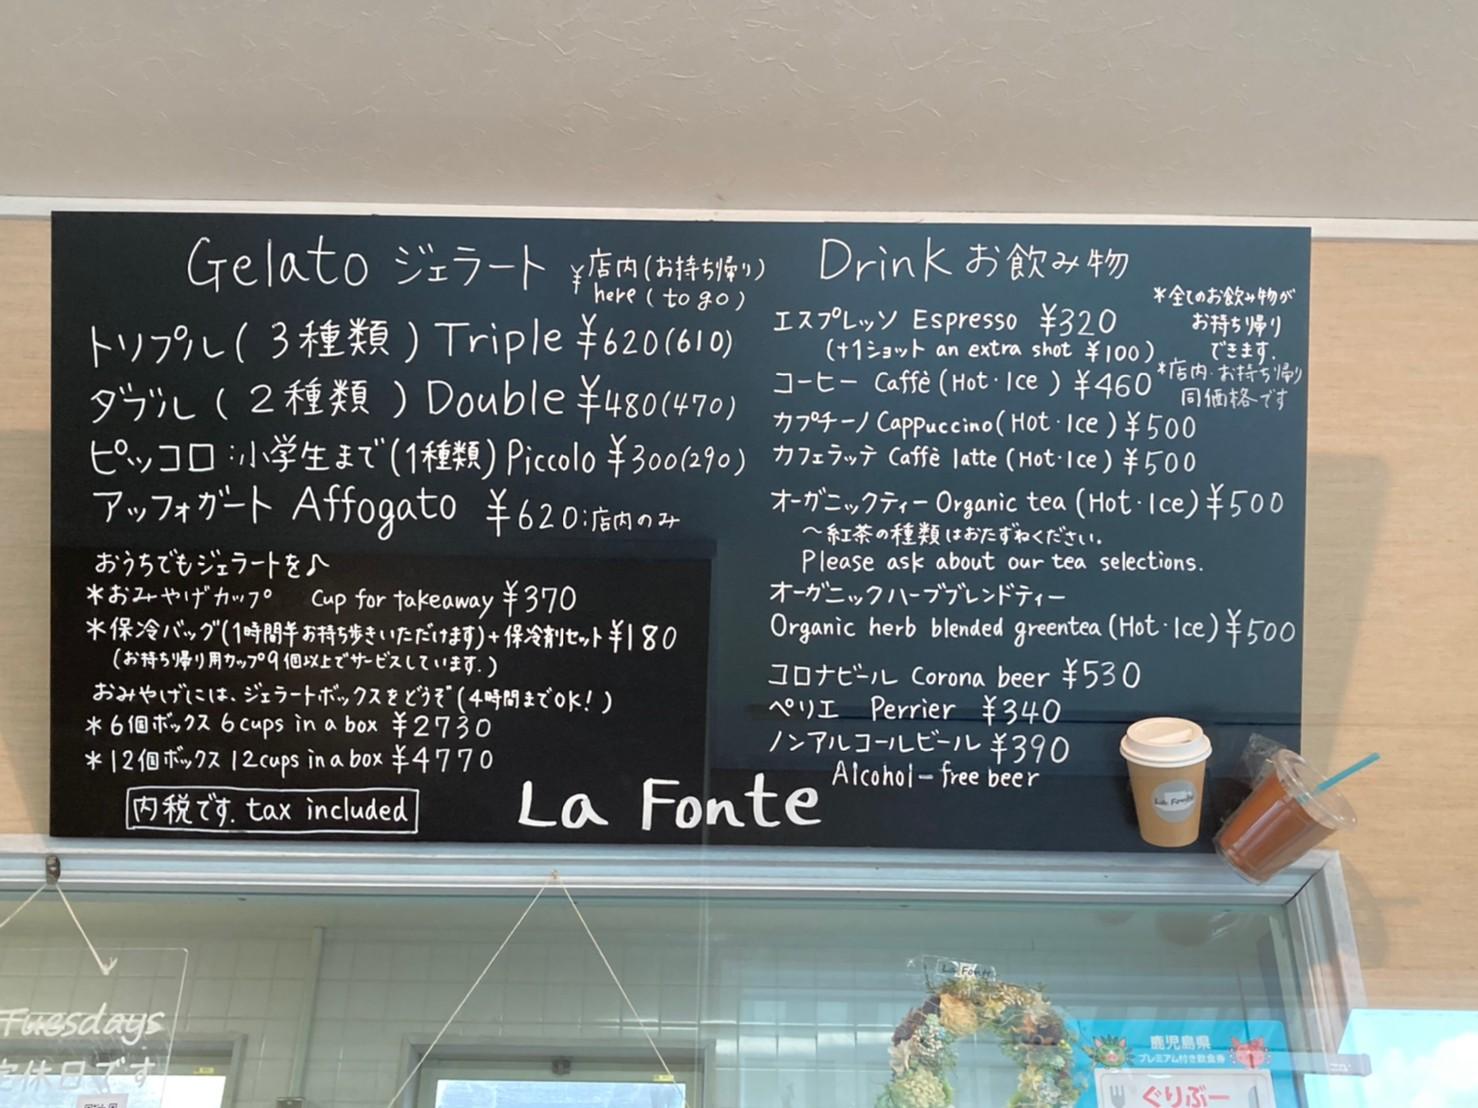 Gelato ジェラート
¥店内(お持ち帰り)
here (to go)
トリプル(3種類) Triple ¥620(610)
ダブル(2種類) Double ¥480(470)
ピッコロ:小学生まで(1種類) Piccolo ¥300(290)
アッフォガート Affogato ¥620:店内のみ
おうちでもジェラートを♪
*おみやげカップ Cup for takeaway ¥370
*保冷バッグ(1時間半お持ち歩きいただけます)+保冷剤セット¥180
(お持ち帰り用カップ9個以上でサービスしています.)
おみやげには、ジェラートボックスをどうぞ(4時間までOK!)
*6個ボックス 6cups in a box ¥2730
*12個ボックス 12cups in a box ¥4770
内税です. tax included
La Fonte
Drink お飲み物
*全てのお飲み物が
お持ち帰り
できます.
*店内・お持ち帰り
同価格です
エスプレッソ Espresso ¥320
(+1ショット an extra shot ¥100)
コーヒー Caffè (Hot・Ice) ¥460
カプチーノ Cappuccino (Hot・Ice) ¥500
カフェラッテ Caffè latte (Hot・Ice) ¥500
オーガニックティー Organic tea (Hot・Ice) ¥500
〜紅茶の種類はおたずねください.
Please ask about our tea selections.
オーガニックハーブブレンドティー
Organic herb blended greentea (Hot・Ice) ¥500
コロナビール Corona beer ¥530
ペリエ Perrier ¥340
ノンアルコールビール ¥390
Alcohol-free beer
La Fonte
La Fonte
Tuesdays
定休日です
鹿児島県
プレミアム付き飲食券
ぐりぶー